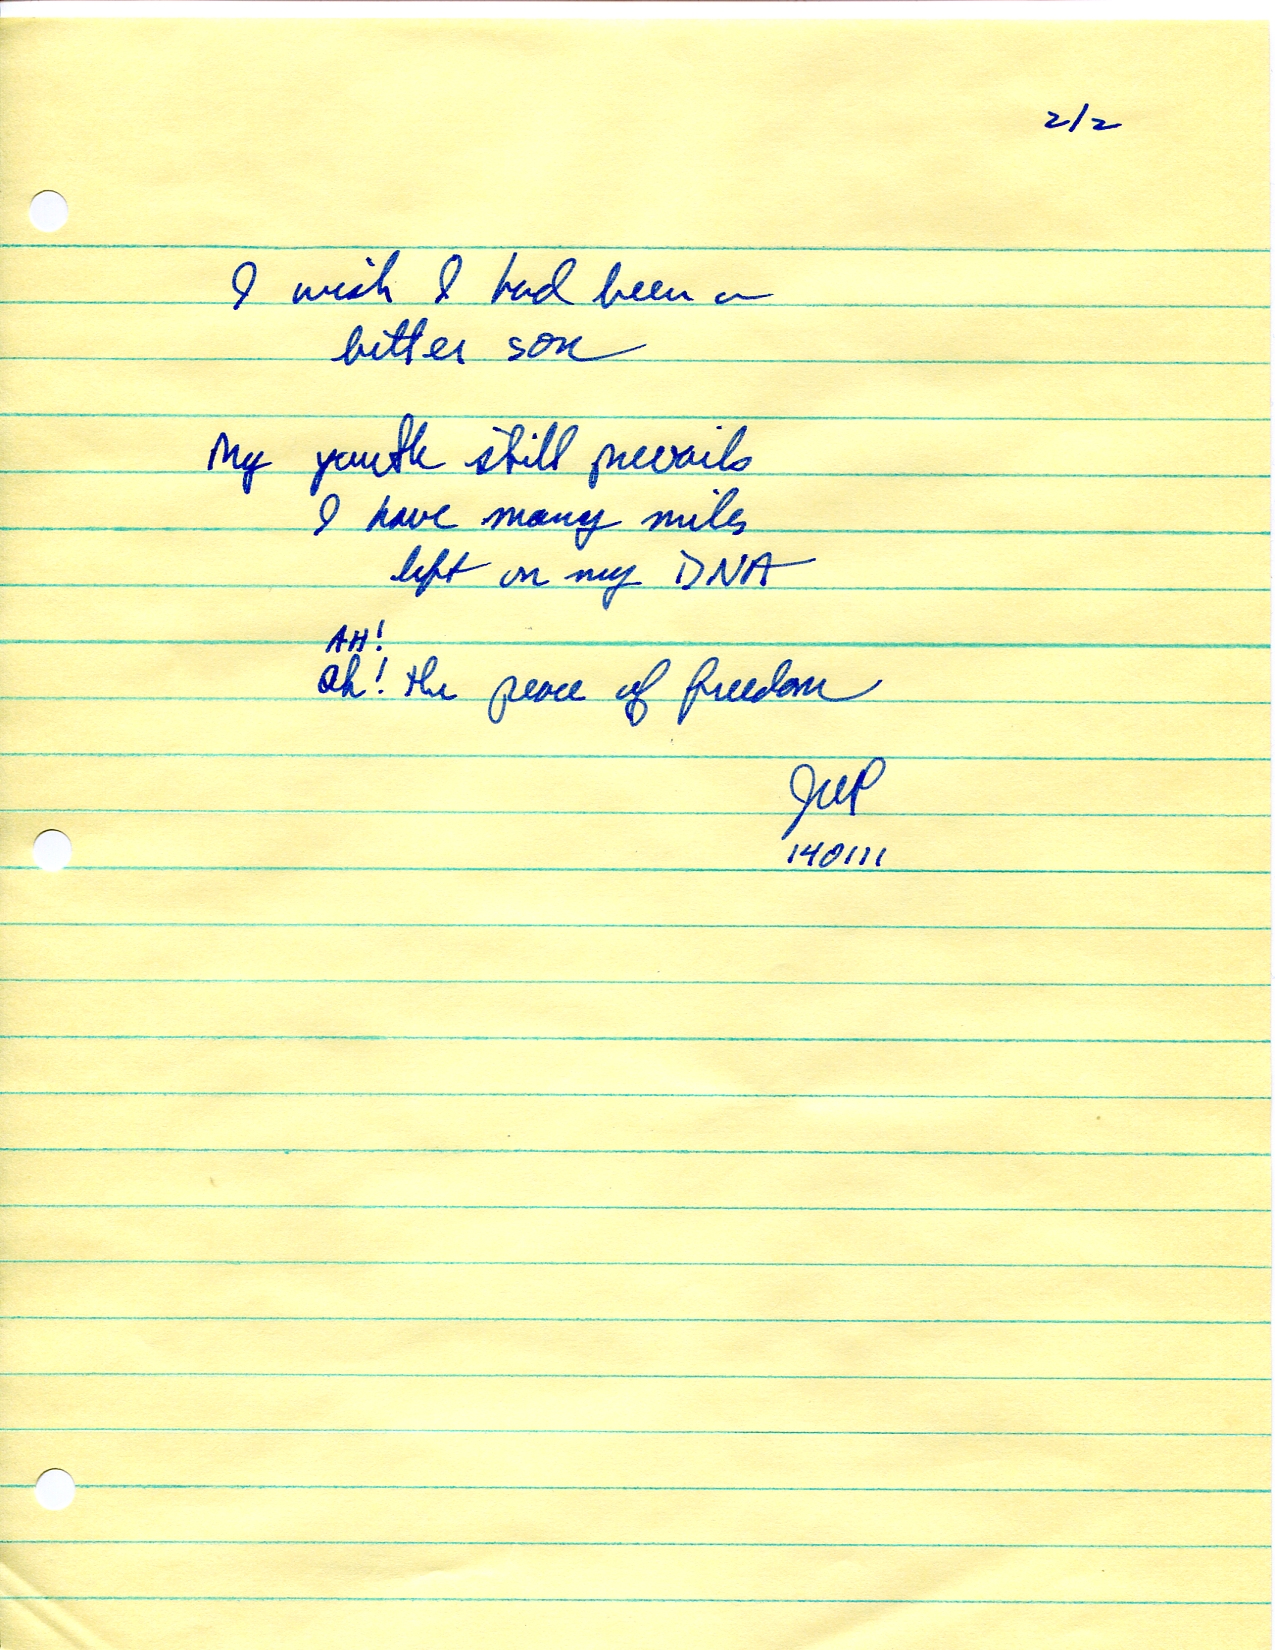 2/2
I wish I had been a
better son
My youth still prevails
I have many miles
left on my DNA
AH!
Ah! the peace of freedom
140111